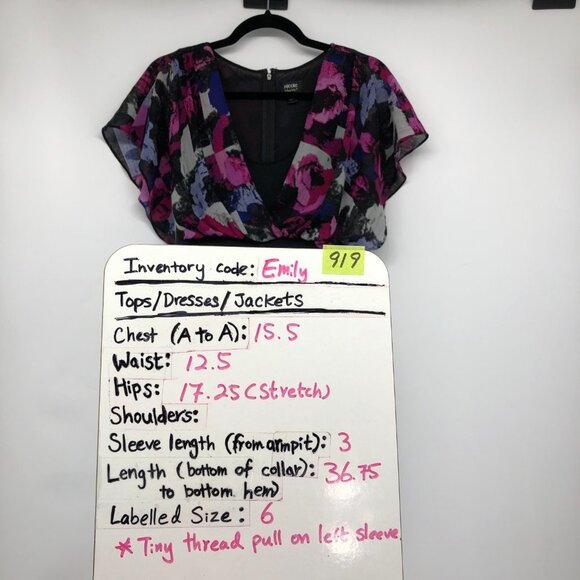 Inventory code: Emily 919
Tops/Dresses/Jackets
Chest (A to A): 15.5
Waist: 12.5
Hips: 17.25 (Stretch)
Shoulders:
Sleeve length (from armpit): 3
Length (bottom of collar): 36.75
to bottom hem)
Labelled Size: 6
* Tiny thread pull on left sleeve